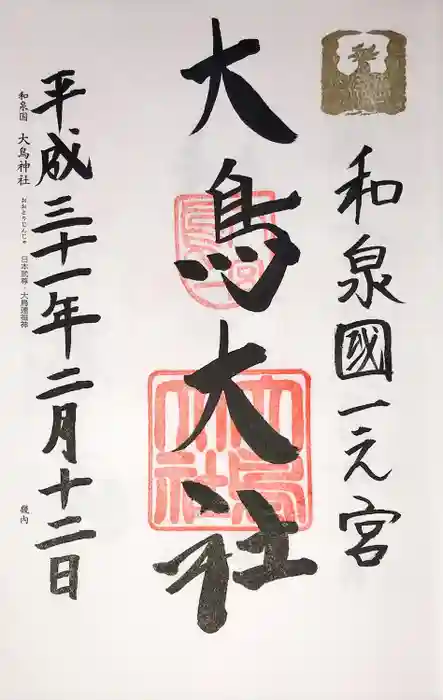 和泉國一之宮
大鳥大社
平成三十一年二月十二日
和泉国 大鳥神社 おおとりじんじゃ 日本武尊・大鳥連祖神
畿内